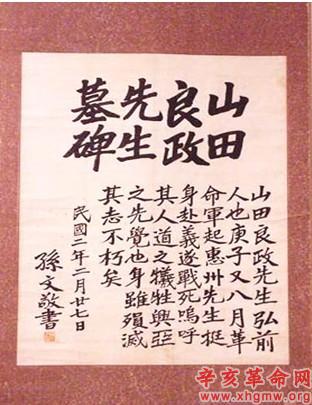 山田
良政
先生
墓碑
山田良政先生弘前
人也庚子又八月革
命軍起惠州先生挺
身赴義遂戰死嗚呼
其人道之犧牲興亞
之先覺也身雖殞滅
其志不朽矣
民國二年二月廿七日
孫文敬書
辛亥革命网
www.xhgmw.org